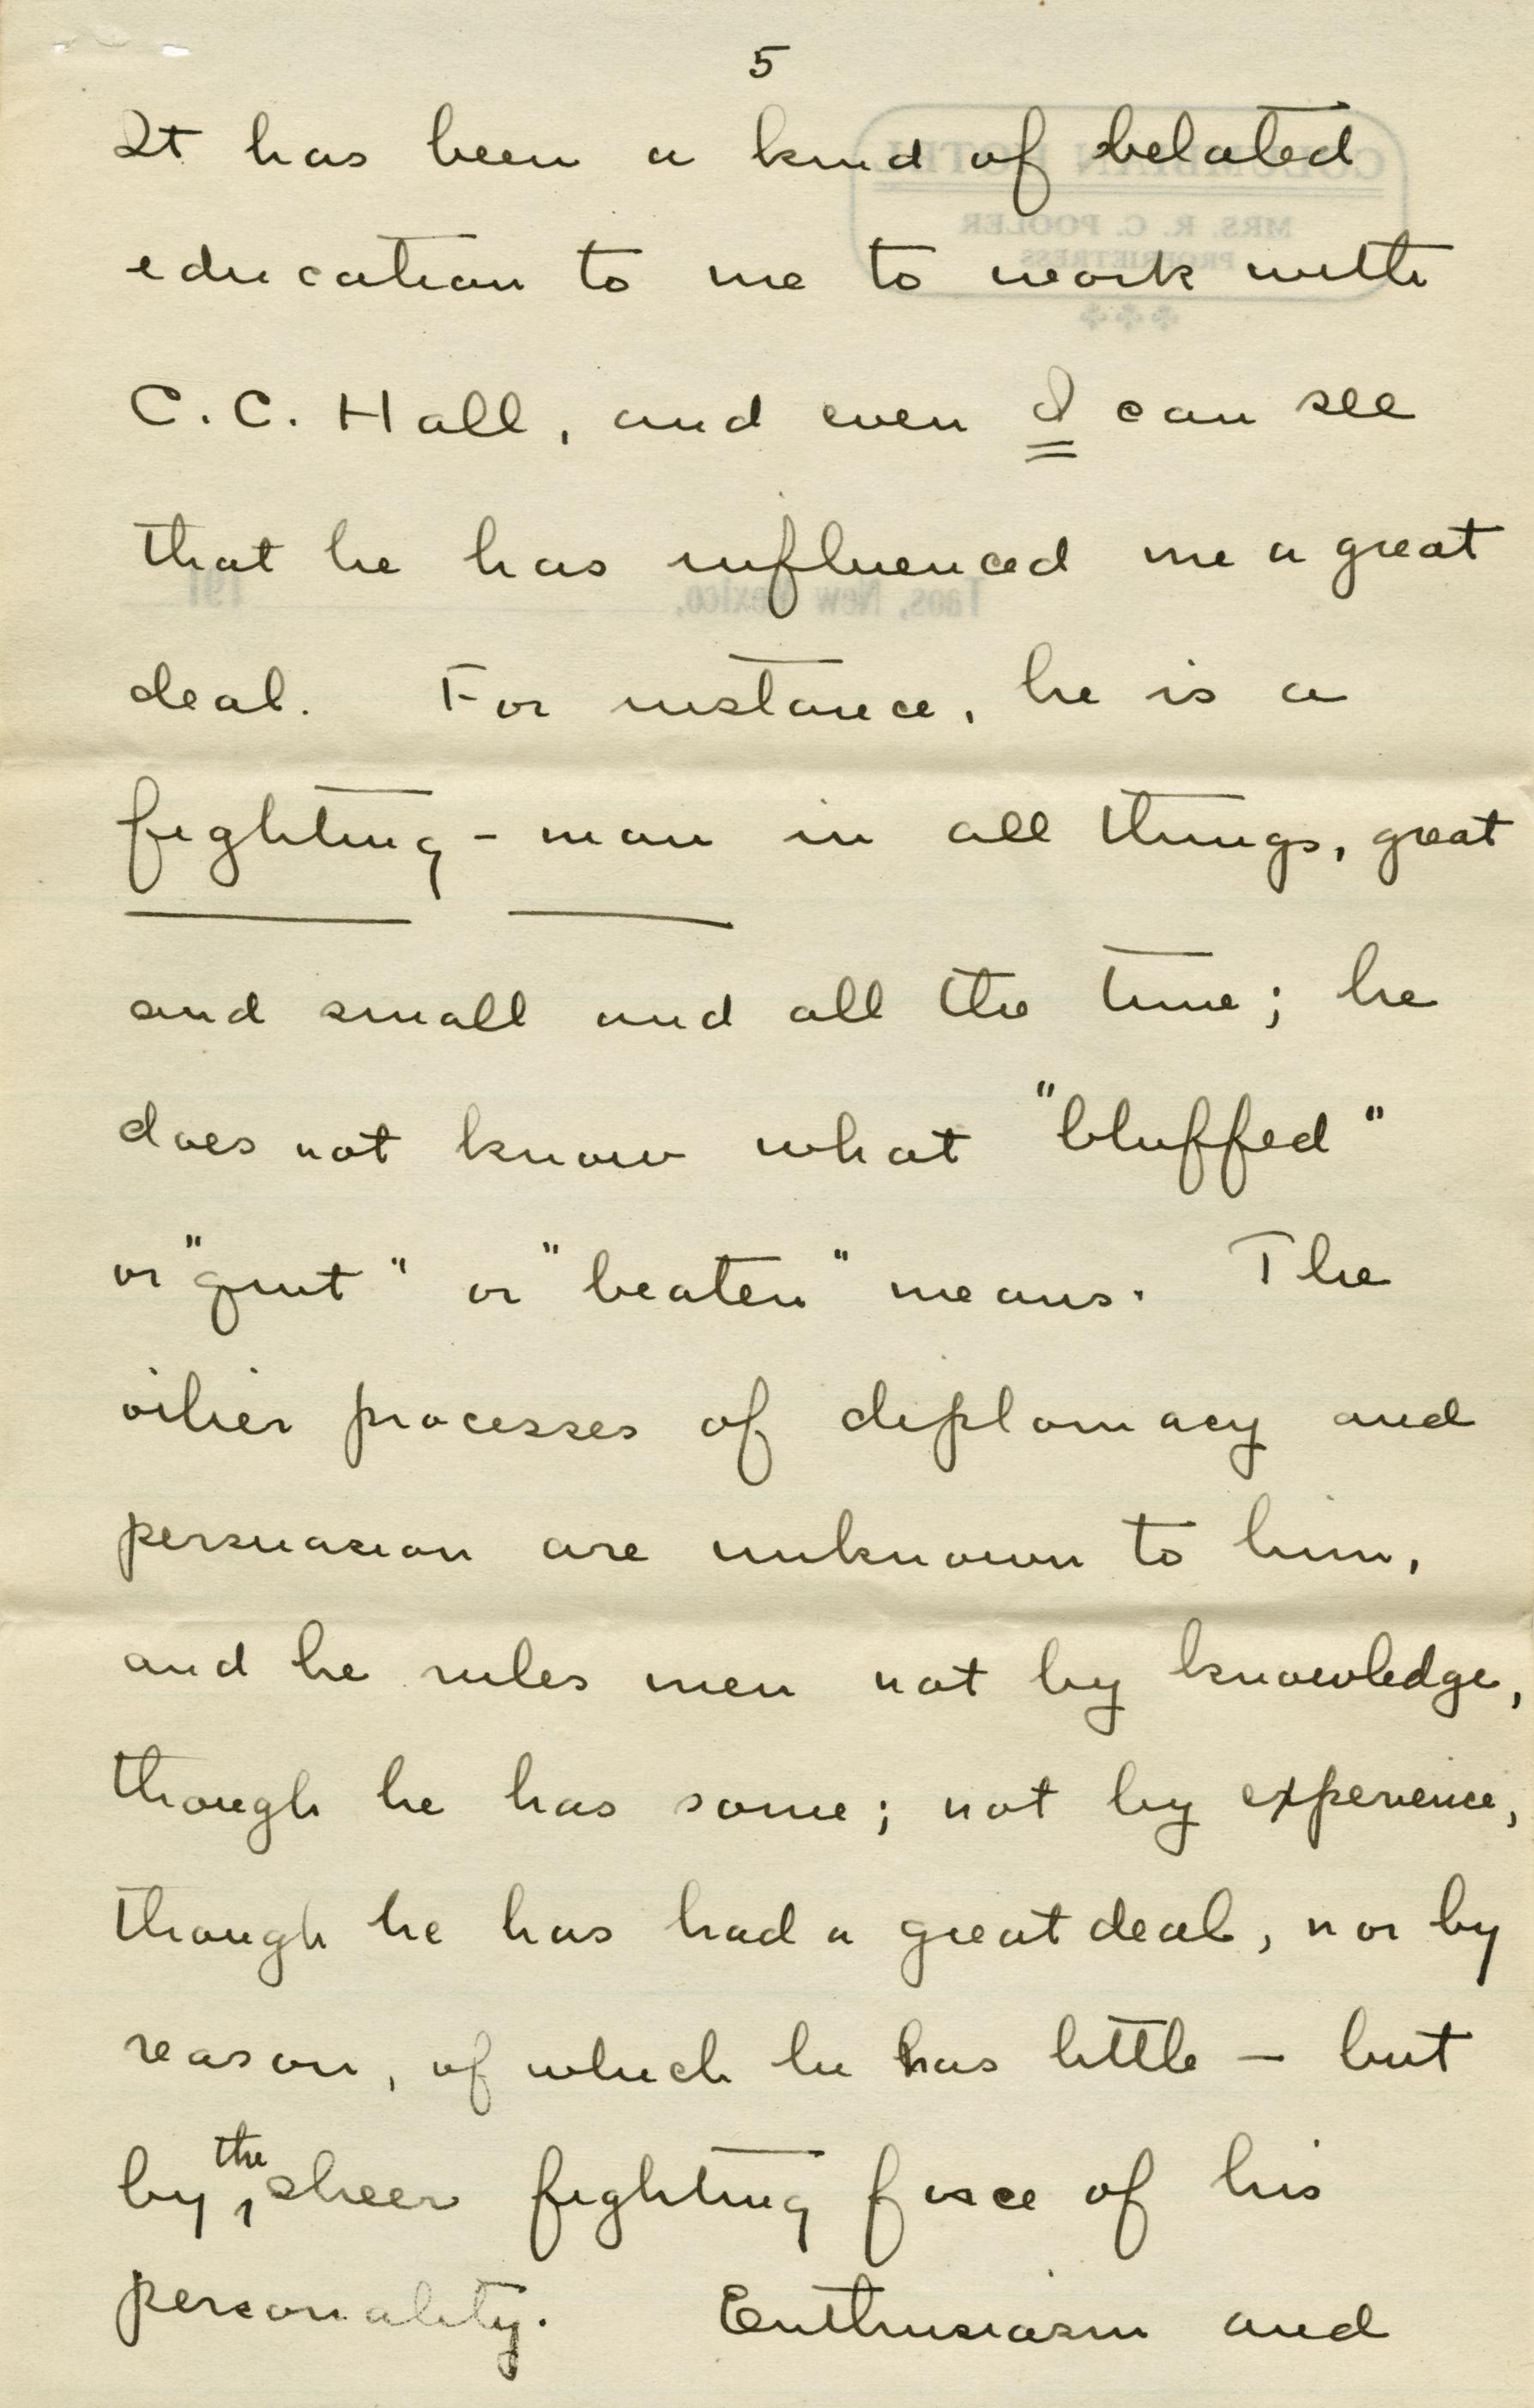 5
It has been a kind of belated
education to me to work with
C. C. Hall, and even I can see
that he has influenced me a great
deal. For instance, he is a
fighting - man in all things, great
and small and all the time; he
does not know what "bluffed"
or "quit" or "beaten" means. The
oilier processes of diplomacy and
persuasion are unknown to him,
and he rules men not by knowledge,
though he has some; not by experience,
though he has had a great deal, nor by
reason, of which he has little — but
by the sheer fighting force of his
personality. Enthusiasm and
COLUMBIAN HOTEL
MRS. R. C. POOLER
PROPRIETRESS
Taos, New Mexico, 191